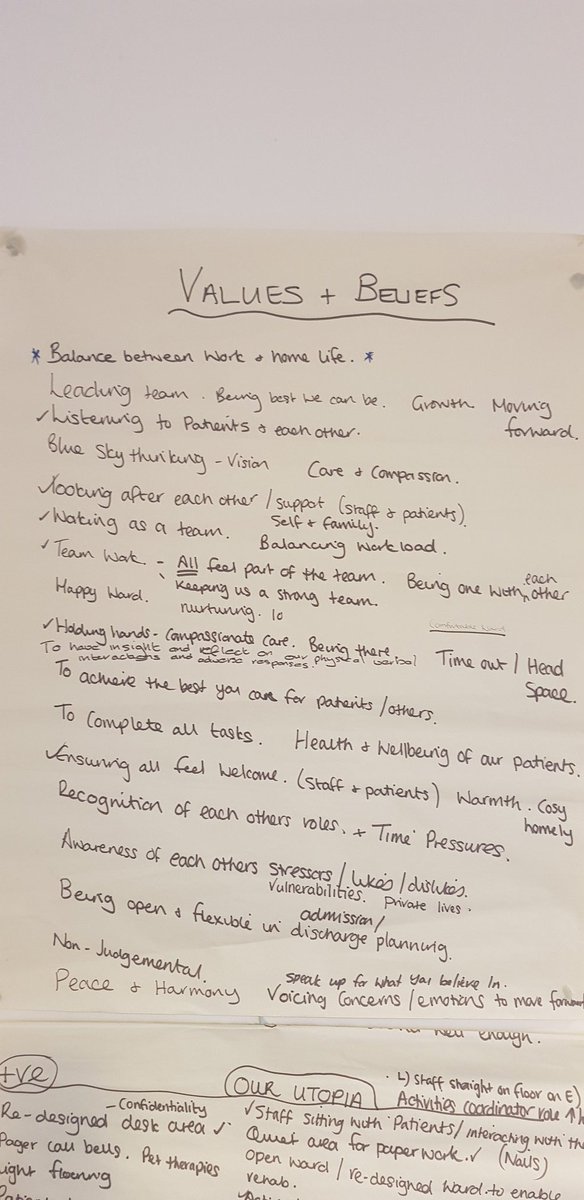 VALUES + BELIEFS
* Balance between work + home life. *
Leading team. Being best we can be. Growth Moving forward.
✓Listening to Patients & each other.
Blue Sky thinking - Vision Care & Compassion.
✓looking after each other / support (staff & patients)
Self & family.
✓Working as a team. Balancing workload.
✓Team Work - ALL feel part of the team. Being one with each other
Happy Ward. Keeping us a strong team.
nurturing.
✓Holding hands - Compassionate care. Being there
To have insight and reflect on our physical verbal
interactions and adverse responses.
Time out / Head Space.
To achieve the best you can for patients / others.
To complete all tasks. Health & Wellbeing of our patients.
✓Ensuring all feel welcome. (Staff & patients) Warmth. Cosy
homely
Recognition of each others roles. + Time Pressures.
Awareness of each others stressors / likes / dislikes.
Vulnerabilities. Private lives.
Being open & flexible in admission /
discharge planning.
Non-Judgemental.
Speak up for what you believe In.
Peace & Harmony Voicing Concerns / emotions to move forward
well enough.
+ve
OUR UTOPIA
L) Staff straight on floor on E)
Activities coordinator role ↑
- Confidentiality
Re-designed desk area ✓
✓Staff sitting with Patients / interacting with
Pager call bells. Pet therapies
Quiet area for paperwork. ✓ (Nails)
open ward / re-designed ward to enable
rehab.